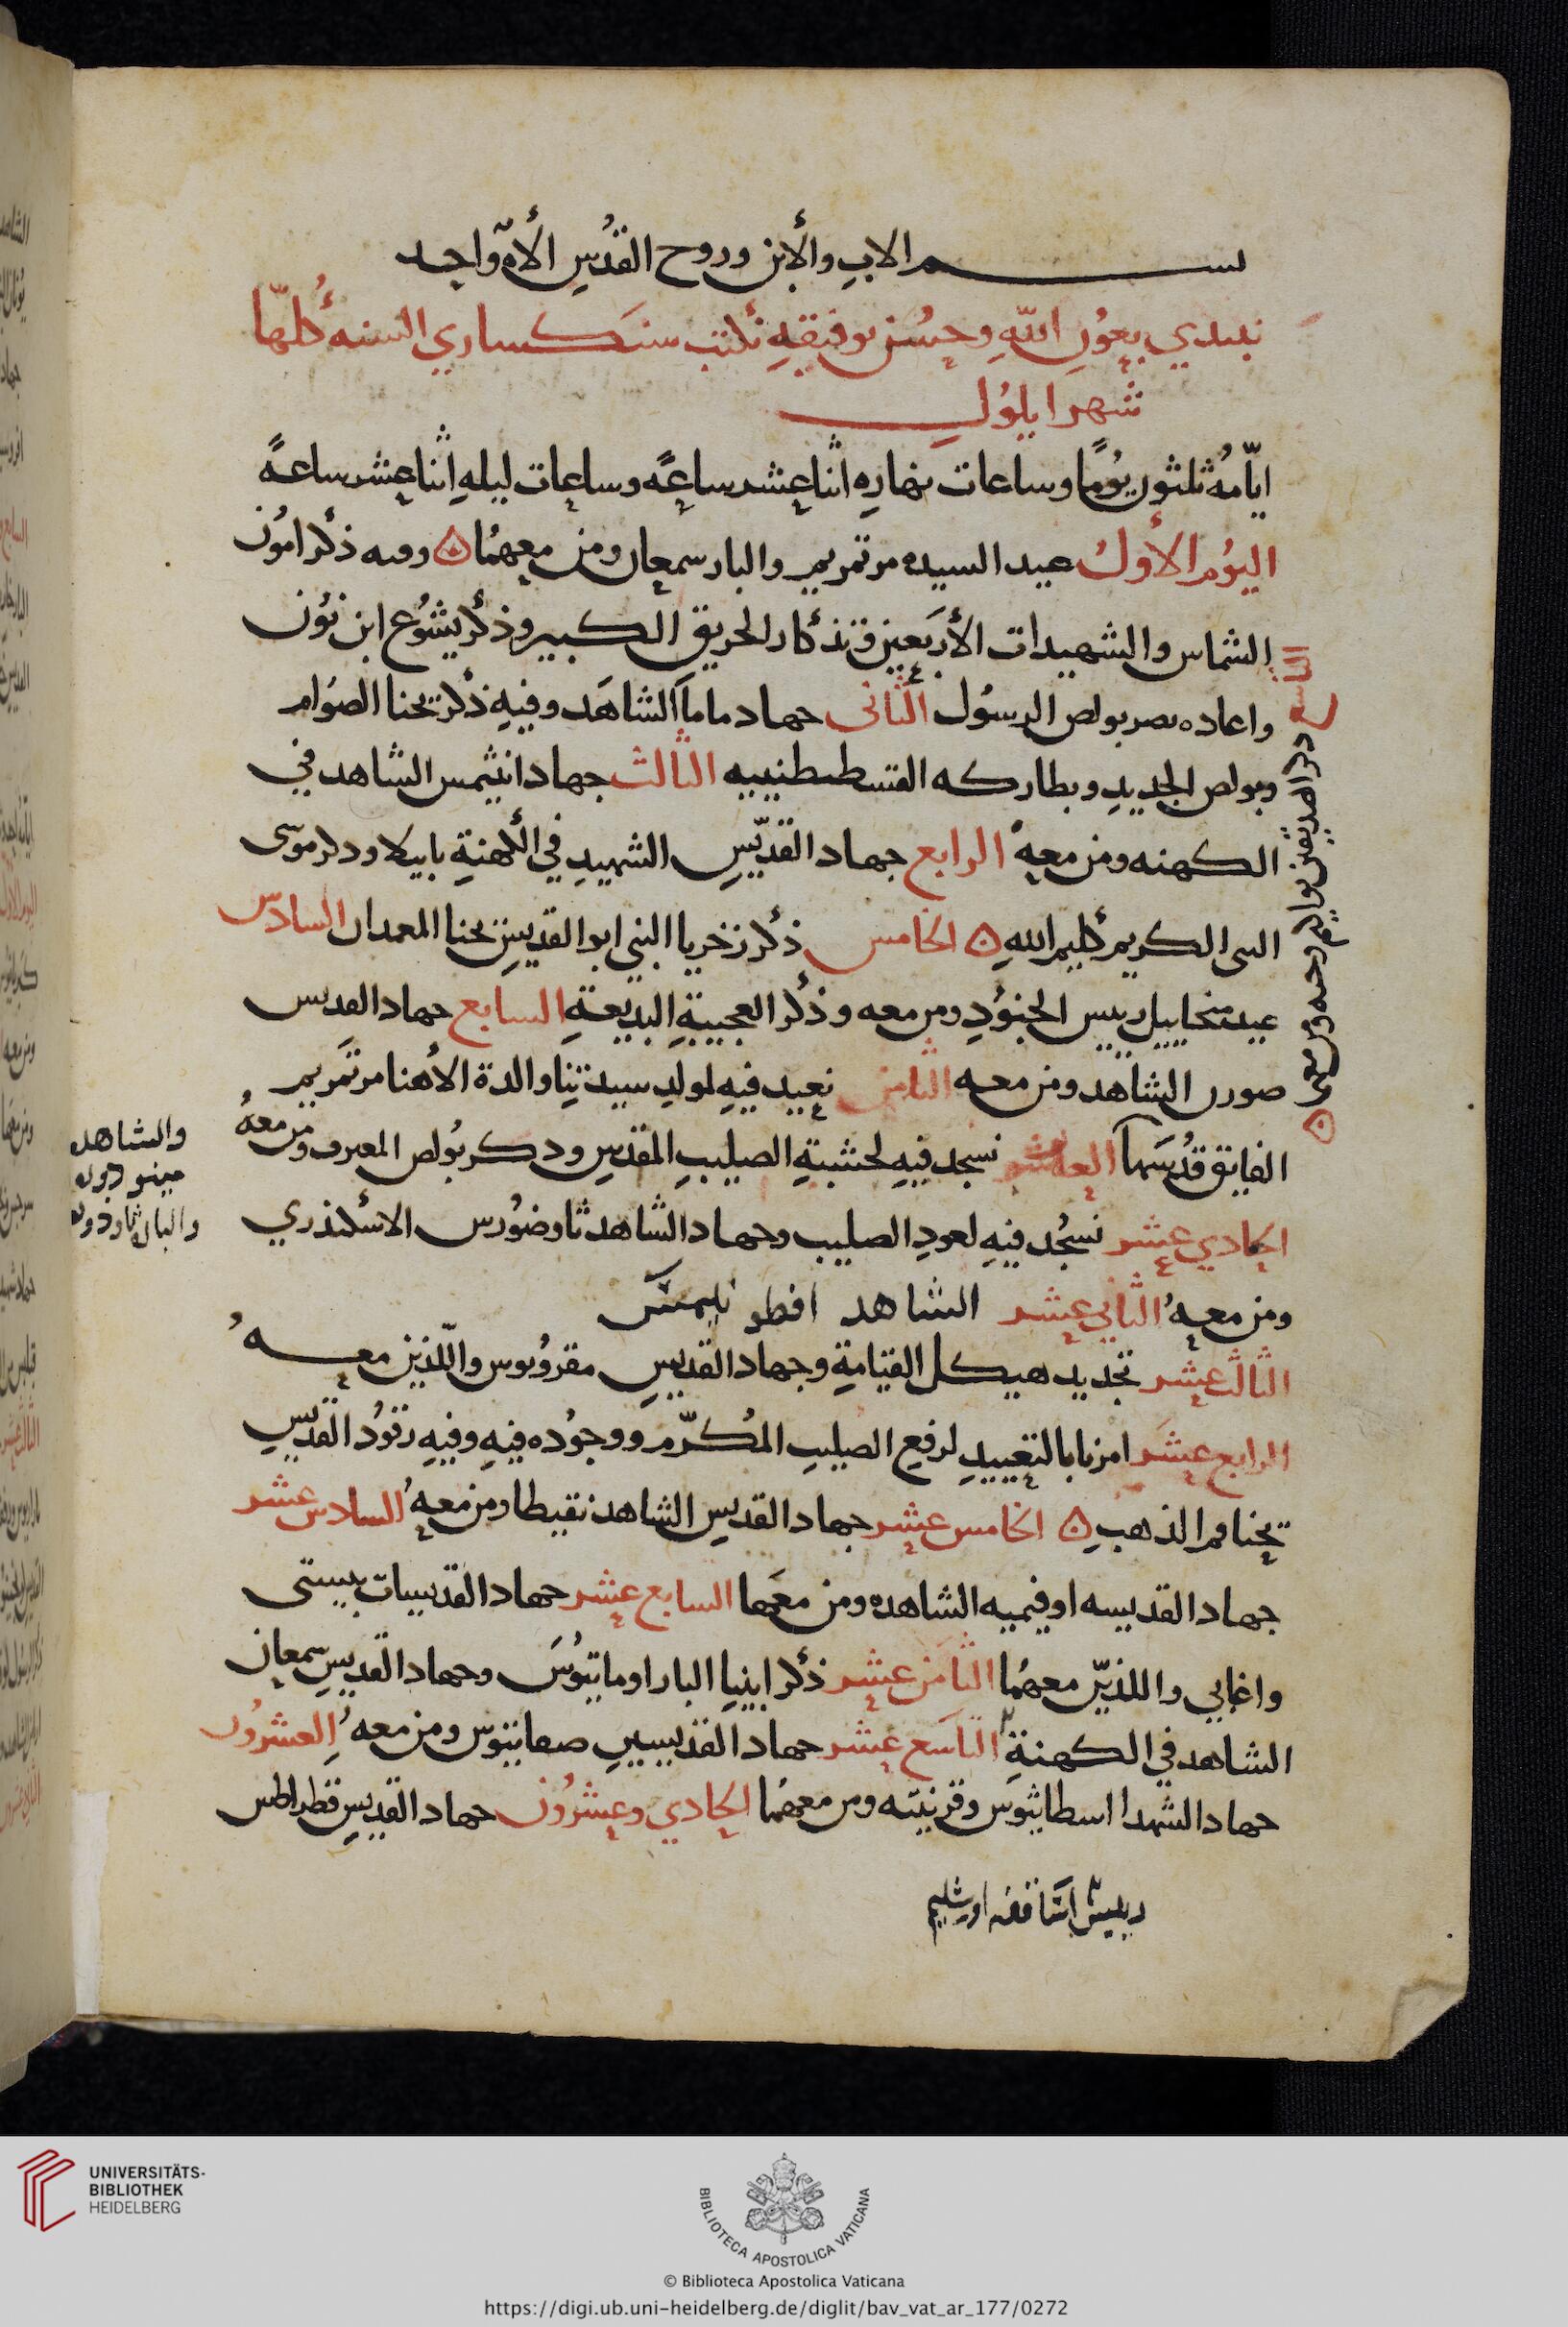 بسم الاب والأبن وروح القدُس الألاه واحد
نبتدي بعون اللّهِ وحُسن توفيقهِ نكتب سنكساري السنه كُلهّا
شهر ايلول
ايّامُهُ ثلثون يوُمًا وساعات نهارهِ اثنا عشر ساعًه وساعات ليلهِ اثنا عشر ساعةً
اليوُم الأولُ عيد السيده مرتمريم والبار سمعان ومن معهمُا وفيه ذكر امُون
الشماس والشهيدات الأربَعين وتذكار الحريق الكبير وذكر يشوُع ابن نوُن
واعاده بصر بولص الرسوُل الثانى جهاد ماما الشاهَد وفيهِ ذكر يحنا الصوَام
وبولص الجديدِ وبطاركه القسطنطينييه الثالث جهاد انثيمس الشاهد في
الكهنه ومن معهُ الرابع جهاد القدّيسِ الشهيدِ في الكهنةِ بابيلا وذكر موسى
النبى الكريم كليم اللهِ الخامس ذكر زخريا النبي ابو القديسِ يحنا المعمدان السادس
عيد ميخاييل رييس الجنوُدِ ومن معه وذكر العجيبةِ البديعةِ السابع جهاد القديس
صوزن الشاهد ومن معه الثامن نعيد فيهِ لمولدِ سيدتنِا والدة الاهنا مرتمَريم
الفايق قدُسَها العاشر نسجد فيهِ لخشبةِ الصليبِ المقدسِ وذكر بوُلص المعترف ومن معهُ
الحادي عشر نسجُد فيهِ لعودِ الصليب وجهاد الشاهد ثاوضوُرس الاسكندري
ومن معهُ الثاني عشر الشاهد افطونيمس
الثالث عشر تجديد هيكل القيامةِ وجهاد القديسِ مقروُبوس والّلذين معهُ
الرابع عشَر امرنا بالتعييدِ لرفعِ الصليبِ المُكرّم ووجوُده فيهِ وفيهِ رقوُد القدّيسِ
يحنا فم الذهبِ الخامس عشر جهاد القديسِ الشاهد نقيطا ومن معهُ السادس عشر
جهاد القديسه اوفيميه الشاهده ومن معَها السابع عشر جهاد القديسات بيستى
واغابي واللذيّن معهمُا الثامَن عشر ذكر ابنيِا البار اوماتيوُسَ وجهاد القديسِ سمعان
الشاهد في الكهنةِ التاسَع عشر جهاد القديسينِ صفاتيوس ومن معهُ العشروُن
جهاد الشهدا اسطاثيوَس وقرنيته ومن معهمُا الحادي وعشرُون جهاد القديسِ قطراطس
رييس اساقفه اورشليم
التاسع
ذكر الصديقين يواكيم وحنه ومن معهم
والشاهد
مينودوره
والبار ثاودوره
UNIVERSITÄTS-
BIBLIOTHEK
HEIDELBERG
BIBLIOTECA APOSTOLICA VATICANA
© Biblioteca Apostolica Vaticana
https://digi.ub.uni-heidelberg.de/diglit/bav_vat_ar_177/0272